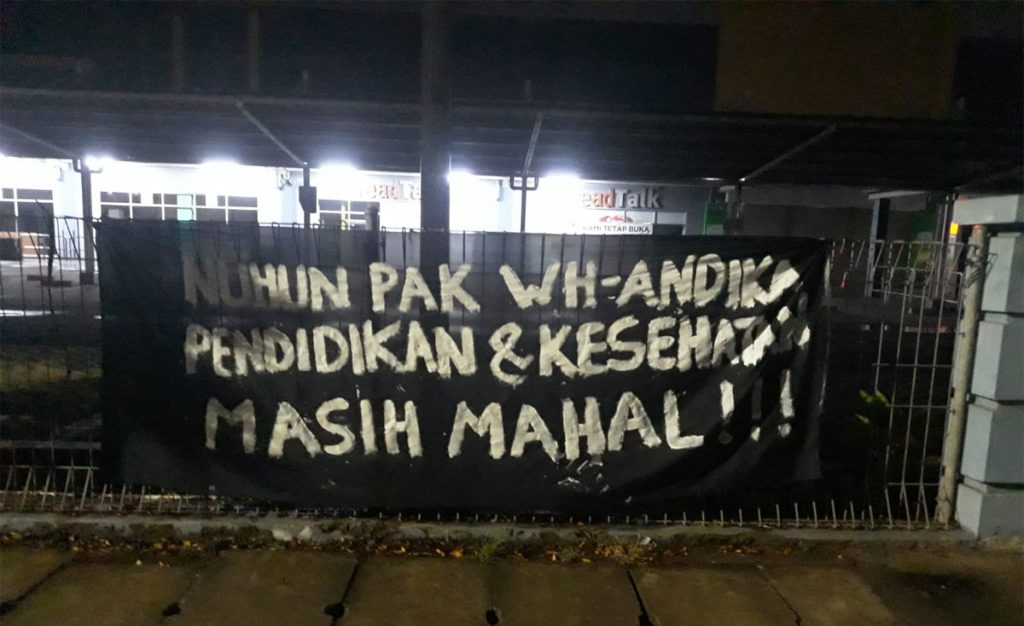 eadTalk
eadTalk
KAMI TETAP BUKA
NUHUN PAK WH-ANDIKA
PENDIDIKAN & KESEHATAN
MASIH MAHAL!!!